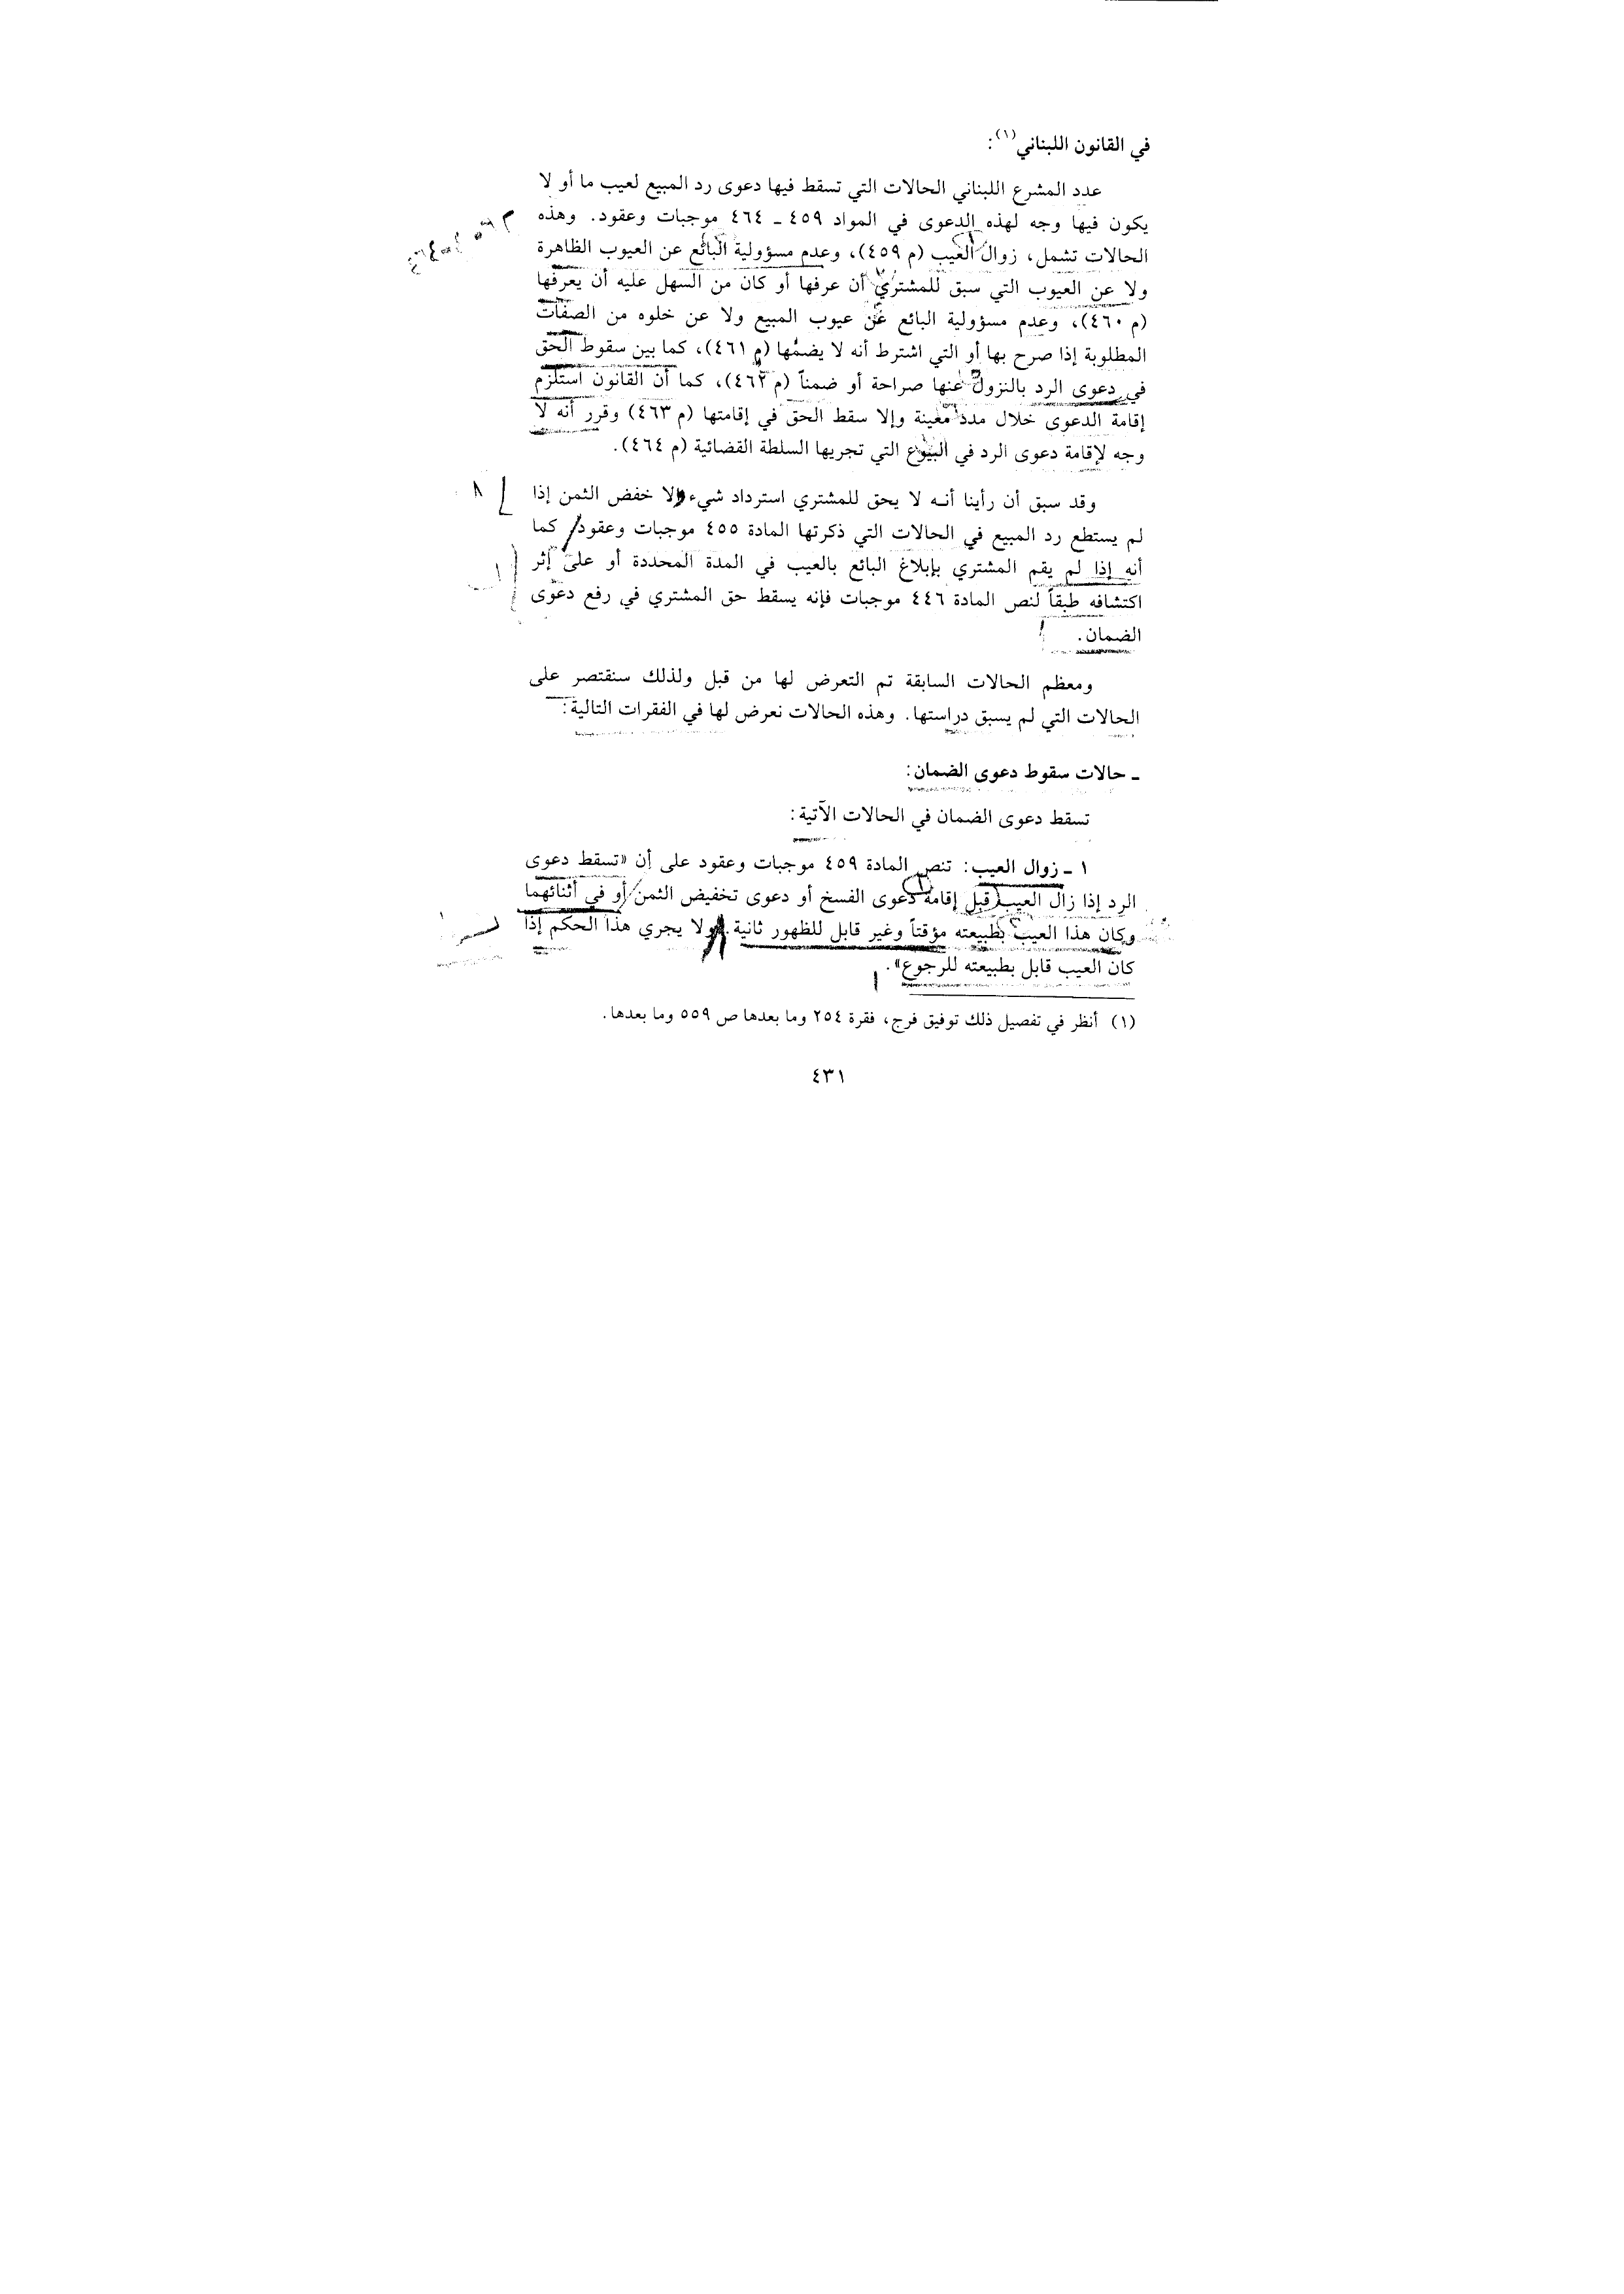 في القانون اللبناني(١):
عدد المشرع اللبناني الحالات التي تسقط فيها دعوى رد المبيع لعيب ما أو لا
يكون فيها وجه لهذه الدعوى في المواد ٤٥٩ ـ ٤٦٤ موجبات وعقود. وهذه
الحالات تشمل، زوال العيب (م ٤٥٩)، وعدم مسؤولية البائع عن العيوب الظاهرة
ولا عن العيوب التي سبق للمشتري أن عرفها أو كان من السهل عليه أن يعرفها
(م ٤٦٠)، وعدم مسؤولية البائع عن عيوب المبيع ولا عن خلوه من الصفات
المطلوبة إذا صرح بها أو التي اشترط أنه لا يضمنها (م ٤٦١)، كما بين سقوط الحق
في دعوى الرد بالنزول عنها صراحة أو ضمناً (م ٤٦٢)، كما أن القانون استلزم
إقامة الدعوى خلال مدد معينة وإلا سقط الحق في إقامتها (م ٤٦٣) وقرر أنه لا
وجه لإقامة دعوى الرد في البيوع التي تجريها السلطة القضائية (م ٤٦٤).
وقد سبق أن رأينا أنه لا يحق للمشتري استرداد شيء ولا خفض الثمن إذا
لم يستطع رد المبيع في الحالات التي ذكرتها المادة ٤٥٥ موجبات وعقود كما
أنه إذا لم يقم المشتري بإبلاغ البائع بالعيب في المدة المحددة أو على إثر
اكتشافه طبقاً لنص المادة ٤٤٦ موجبات فإنه يسقط حق المشتري في رفع دعوى
الضمان.
ومعظم الحالات السابقة تم التعرض لها من قبل ولذلك سنقتصر على
الحالات التي لم يسبق دراستها. وهذه الحالات نعرض لها في الفقرات التالية:
ـ حالات سقوط دعوى الضمان:
تسقط دعوى الضمان في الحالات الآتية:
١ ـ زوال العيب: تنص المادة ٤٥٩ موجبات وعقود على أن «تسقط دعوى
الرد إذا زال العيب قبل إقامة دعوى الفسخ أو دعوى تخفيض الثمن أو في أثنائهما
وكان هذا العيب بطبيعته مؤقتاً وغير قابل للظهور ثانية. ولا يجري هذا الحكم إذا
كان العيب قابل بطبيعته للرجوع».
(١) أنظر في تفصيل ذلك توفيق فرج، فقرة ٢٥٤ وما بعدها ص ٥٥٩ وما بعدها.
٤٣١